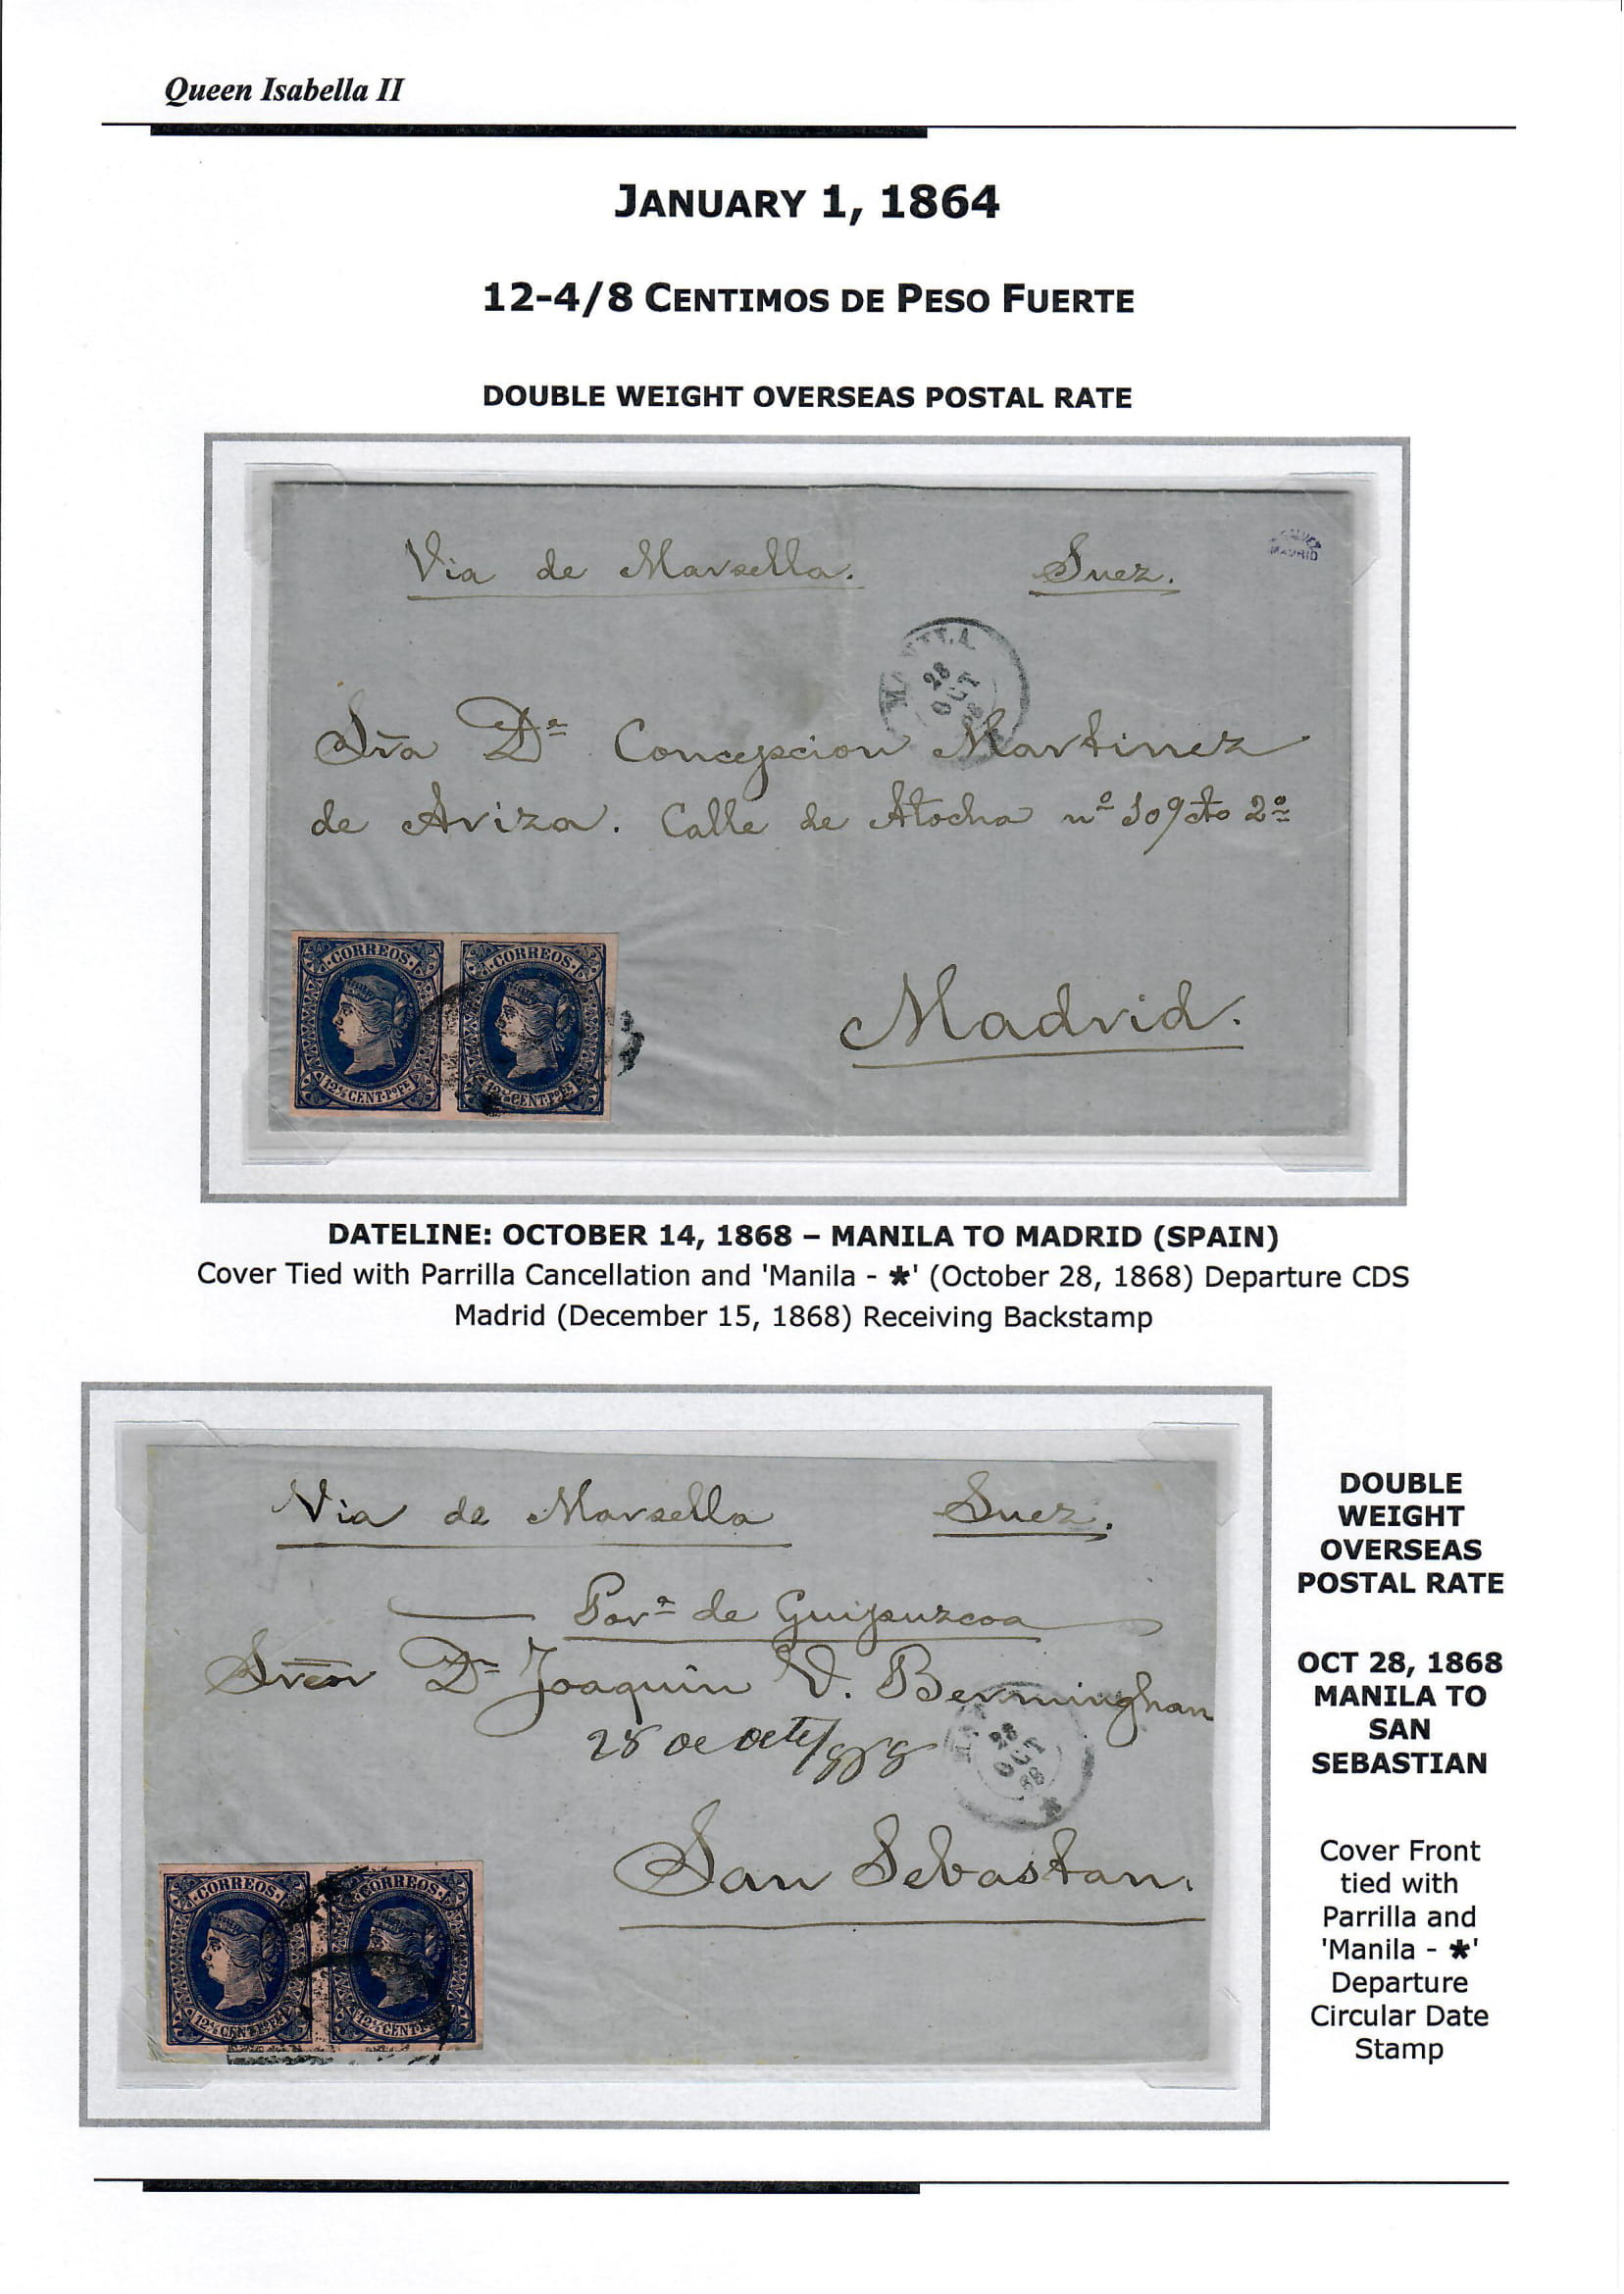 Queen Isabella II
JANUARY 1, 1864
12-4/8 CENTIMOS DE PESO FUERTE
DOUBLE WEIGHT OVERSEAS POSTAL RATE
Via de Marsella. Suez.
MADRID
MANILA
28
OCT
68
Sra Dª Concepcion Martinez
de Ariza. Calle de Atocha nº 109 cto 2º
Madrid.
CORREOS CORREOS
12 4/8 CENT. Pº Fe 12 4/8 CENT. Pº Fe
DATELINE: OCTOBER 14, 1868 – MANILA TO MADRID (SPAIN)
Cover Tied with Parrilla Cancellation and 'Manila - *' (October 28, 1868) Departure CDS
Madrid (December 15, 1868) Receiving Backstamp
Via de Marsella Suez.
Porª de Guipuzcoa
Sreñor Dn Joaquin V. Bermingham
28 de octe/868
28
OCT
68
*
San Sebastan.
CORREOS CORREOS
12 4/8 CENT. Pº Fe 12 4/8 CENT. P
DOUBLE
WEIGHT
OVERSEAS
POSTAL RATE
OCT 28, 1868
MANILA TO
SAN
SEBASTIAN
Cover Front
tied with
Parrilla and
'Manila - *'
Departure
Circular Date
Stamp